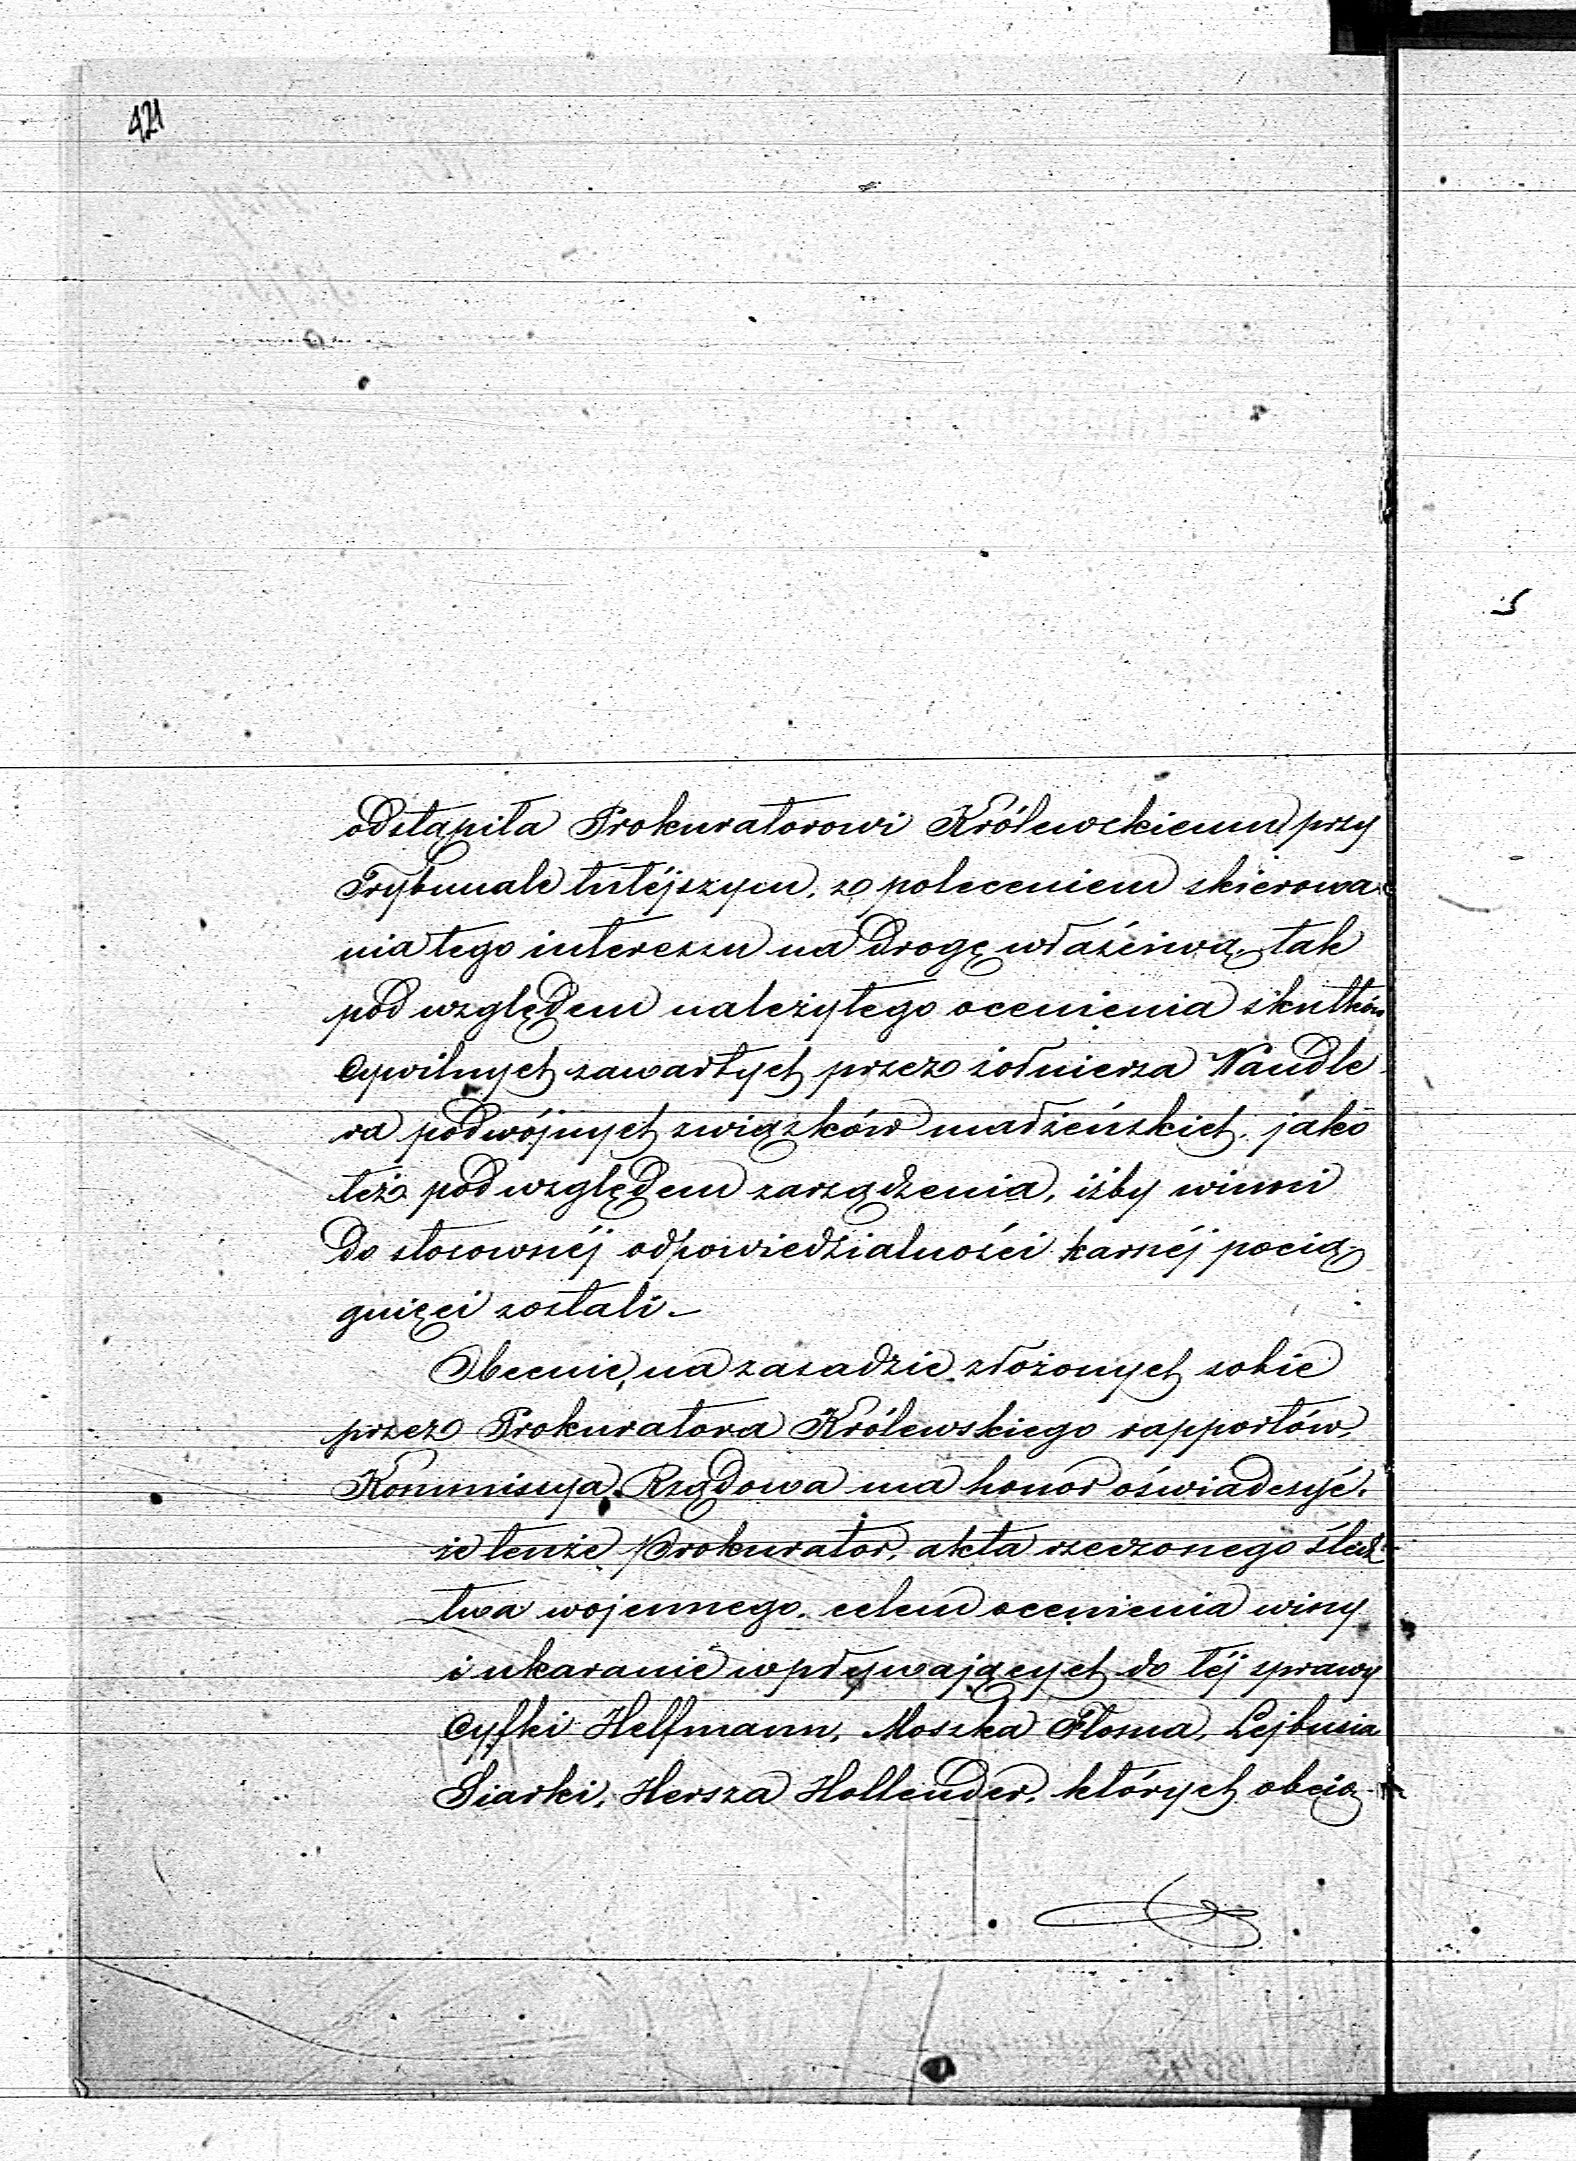 421
odstąpiła Prokuratorowi Królewskiemu przy
Trybunale tutéjszym, z poleceniem skierowa
nia tego interessu na drogę właściwą, tak
pod względem należytego ocenienia skutków
cywilnych zawartych przez żołnierza Naudle
ra podwójnych związków małżeńskich, jako
też pod względem zarządzenia, iżby winni
do stosownéj odpowiedzialności karnéj pocią
gnięci zostali.
Obecnie, na zasadzie złożonych sobie
przez Prokuratora Królewskiego rapportów,
Kommissya Rządowa ma honor oświadczyć,
że tenże Prokurator, akta rzeczonego śledz
twa wojennego, celem ocenienia winy
i ukaranie wpływających do téj sprawy
Cyfki Helfmann, Moszka Floma, Lejbusia
Siarki, Hersza Hollender, których obcią